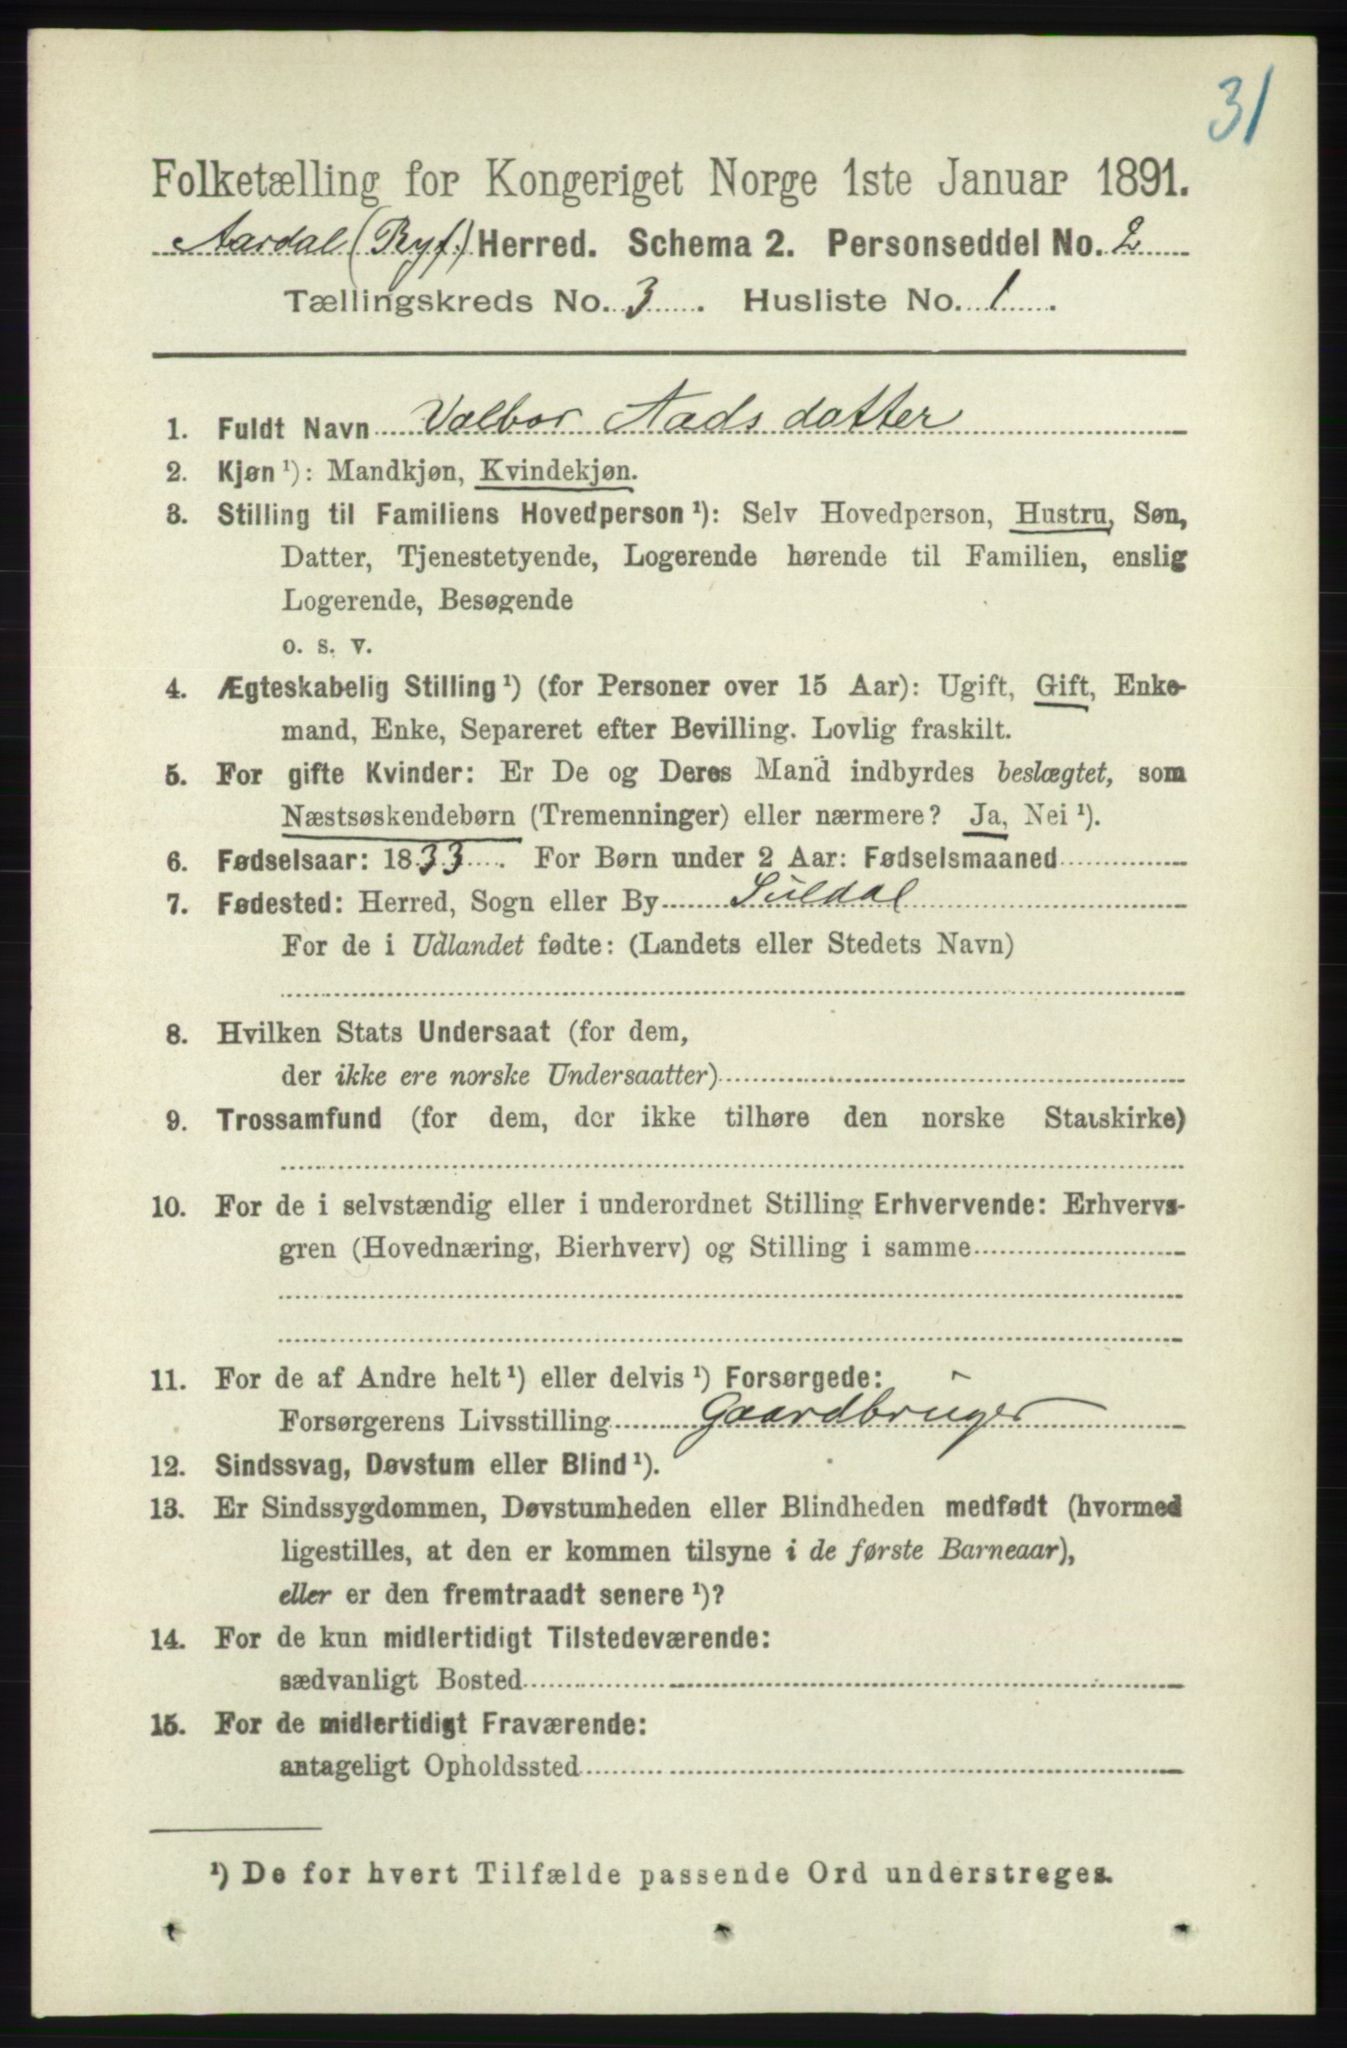 31
Folketælling for Kongeriget Norge 1ste Januar 1891.
Aardal (Ryf.) Herred. Schema 2. Personseddel No. 2
Tællingskreds No. 3. Husliste No. 1.
1. Fuldt Navn Valbor Aadsdatter
2. Kjøn¹): Mandkjøn, Kvindekjøn.
3. Stilling til Familiens Hovedperson¹): Selv Hovedperson, Hustru, Søn,
Datter, Tjenestetyende, Logerende hørende til Familien, enslig
Logerende, Besøgende
o. s. v.
4. Ægteskabelig Stilling¹) (for Personer over 15 Aar): Ugift, Gift, Enke-
mand, Enke, Separeret efter Bevilling. Lovlig fraskilt.
5. For gifte Kvinder: Er De og Deres Mand indbyrdes beslægtet, som
Næstsøskendebørn (Tremenninger) eller nærmere? Ja, Nei¹).
6. Fødselsaar: 1833. For Børn under 2 Aar: Fødselsmaaned
7. Fødested: Herred, Sogn eller By Suldal
For de i Udlandet fødte: (Landets eller Stedets Navn)
8. Hvilken Stats Undersaat (for dem,
der ikke ere norske Undersaatter)
9. Trossamfund (for dem, der ikke tilhøre den norske Statskirke)
10. For de i selvstændig eller i underordnet Stilling Erhvervende: Erhvervs-
gren (Hovednæring, Bierhverv) og Stilling i samme
11. For de af Andre helt¹) eller delvis¹) Forsørgede:
Forsørgerens Livsstilling Gaardbruger
12. Sindssvag, Døvstum eller Blind¹).
13. Er Sindssygdommen, Døvstumheden eller Blindheden medfødt (hvormed
ligestilles, at den er kommen tilsyne i de første Barneaar),
eller er den fremtraadt senere¹)?
14. For de kun midlertidigt Tilstedeværende:
sædvanligt Bosted
15. For de midlertidigt Fraværende:
antageligt Opholdssted
¹) De for hvert Tilfælde passende Ord understreges.